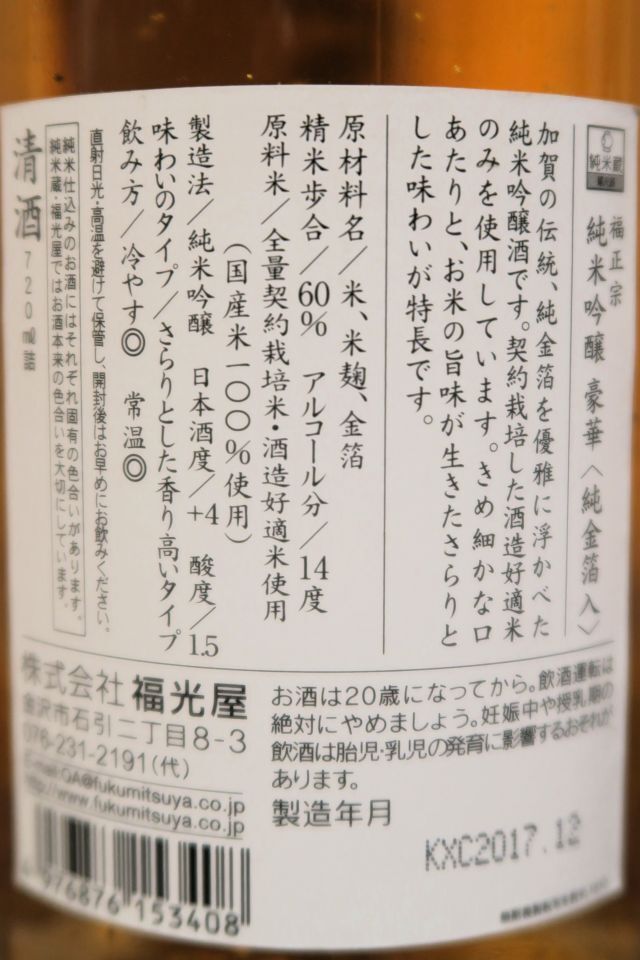 純米蔵
福正宗
純米吟醸 豪華〈純金箔入〉
加賀の伝統、純金箔を優雅に浮かべた
純米吟醸酒です。契約栽培した酒造好適米
のみを使用しています。きめ細かな口
あたりと、お米の旨味が生きたさらりと
した味わいが特長です。
原材料名／米、米麹、金箔
精米歩合／60% アルコール分／14度
原料米／全量契約栽培米・酒造好適米使用
（国産米一〇〇%使用）
製造法／純米吟醸 日本酒度／+4 酸度／1.5
味わいのタイプ／さらりとした香り高いタイプ
飲み方／冷やす◎ 常温◎
直射日光・高温を避けて保管し、開封後はお早めにお飲みください。
純米仕込みのお酒にはそれぞれ固有の色合いがあります。
純米蔵・福光屋ではお酒本来の色合いを大切にしています。
清酒 720ml詰
株式会社 福光屋
金沢市石引二丁目8-3
076-231-2191（代）
E-mail:OA@fukumitsuya.co.jp
http://www.fukumitsuya.co.jp
4976876 153408
お酒は20歳になってから。飲酒運転は
絶対にやめましょう。妊娠中や授乳期の
飲酒は胎児・乳児の発育に影響するおそれが
あります。
製造年月
KXC2017.12